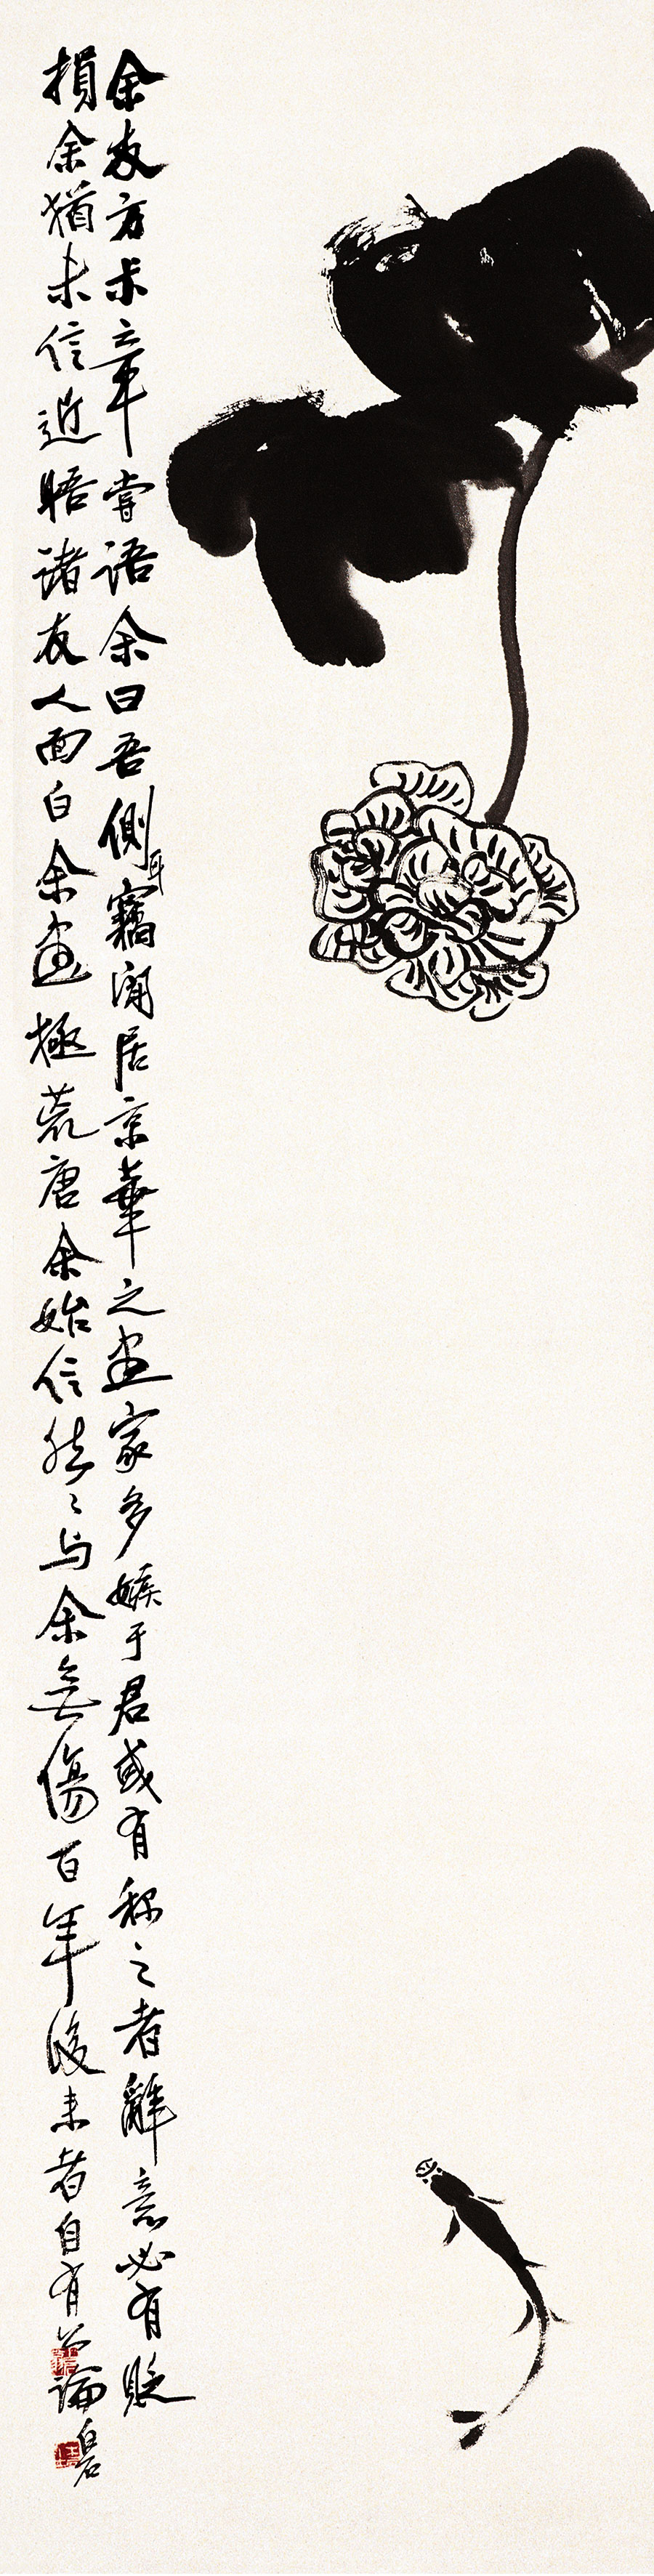 余友方朮章嘗語余曰吾側耳竊聞居京華之畫家多嫉于君或有称之者辭意必有貶
損余猶未信近晤諸友人面白余畫極荒唐余始信然〻与余無傷百年後来者自有公論
白石